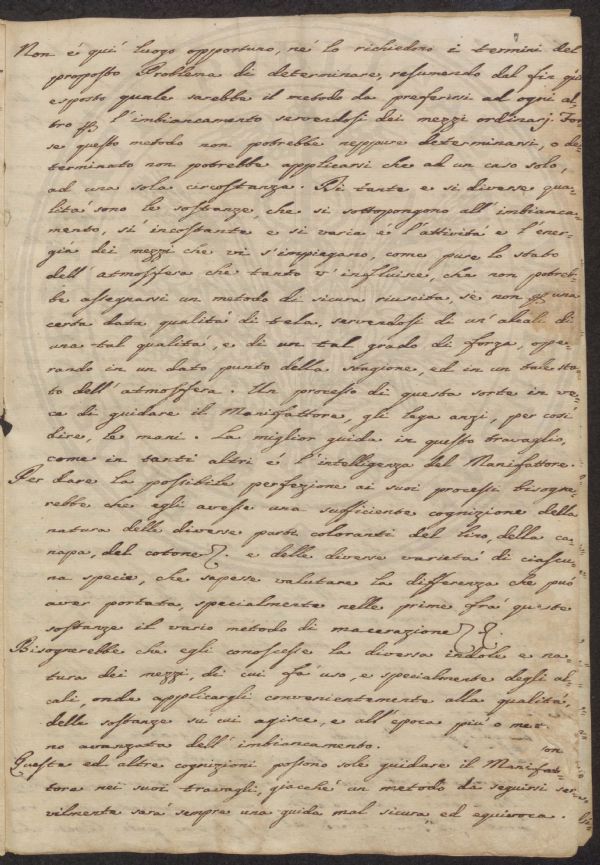 7
Non é quì luogo opportuno, né lo richiedono i termini del
proposto Problema di determinare, resumendo dal fin quì
esposto quale sarebbe il metodo da preferirsi ad ogni al-
tro l'imbiancamento servendosi dei mezzi ordinarj. For-
se questo metodo non potrebbe neppure determinarsi, o de-
terminato non potrebbe applicarsi che ad un caso solo,
ad una sola circostanza. Di tante e si diverse qua-
lità sono le sostanze, che si sottopongono all'imbianca-
mento, si incostante e si varia é l'attività e l'ener-
gia dei mezzi che vi s'impiegano, come pure lo stato
dell'atmosfera che tanto v'influisce, cha non potreb-
be assegnarsi un metodo di sicura riuscita, se non una
certa data qualità di tela, servendosi di un'alcali di
una tal qualità, e di un tal grado di forza, ope-
rando in un dato punto della stagione, ed in un tale sta-
to dell'atmosfera. Un processo di questa sorte in ve-
ce di guidare il Manifattore, gli lega anzi, per così
dire, le mani. La miglior guida in questo travaglio,
come in tanti altri é l'intelligenza del Manifattore.
Per dare la possibile perfezione ai suoi processi bisogne-
rebbe che egli avesse una sufficiente cognizione della
natura delle diverse parti coloranti del lino, della ca-
napa, del cotone e delle diverse varietà di ciascu-
na specie, che sapesse valutare la differenza che può
aver portata, specialmente nelle prime frà queste
sostanze il vario metodo di macerazione
Bisognerebbe che egli conoscesse la diversa indole e na-
tura dei mezzi, di cui fà uso, e specialmente degli al-
cali, onde applicargli convenientemente alla qualità,
delle sostanze su cui agisce, e all'epoca più o me-
no avanzata dell'imbiancamento.
Queste ed altre cognizioni possono sole guidare il Manifat-
tore nei suoi travagli, giacché un metodo da seguirsi ser-
vilmente sarà sempre una guida mal sicura, ed equivoca.